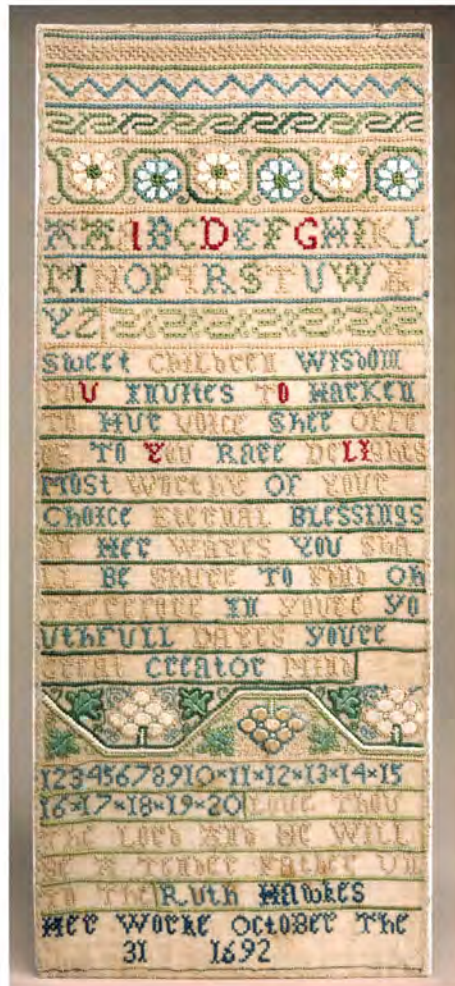 A A I B C D E F G H I K L
M I N O P Q R S T U W X
Y Z
Sweet Children Wisdom
You Invites To Harken
To Hur Voice Shee Offe
rs To You Rare DeLights
Most Worthy Of Youre
Choice Eternal Blessings
In Her Wayes You Sha
ll Be Shure To Find Oh
Therefore In Youre Yo
uthfull Dayes Youre
Great Creator Mind
12345678910×11×12×13×14×15
16×17×18×19×20 Love Thou
The Lord And He Will
Be A Tender Father Un
To The Ruth Hawkes
Her Worke October The
31 1692